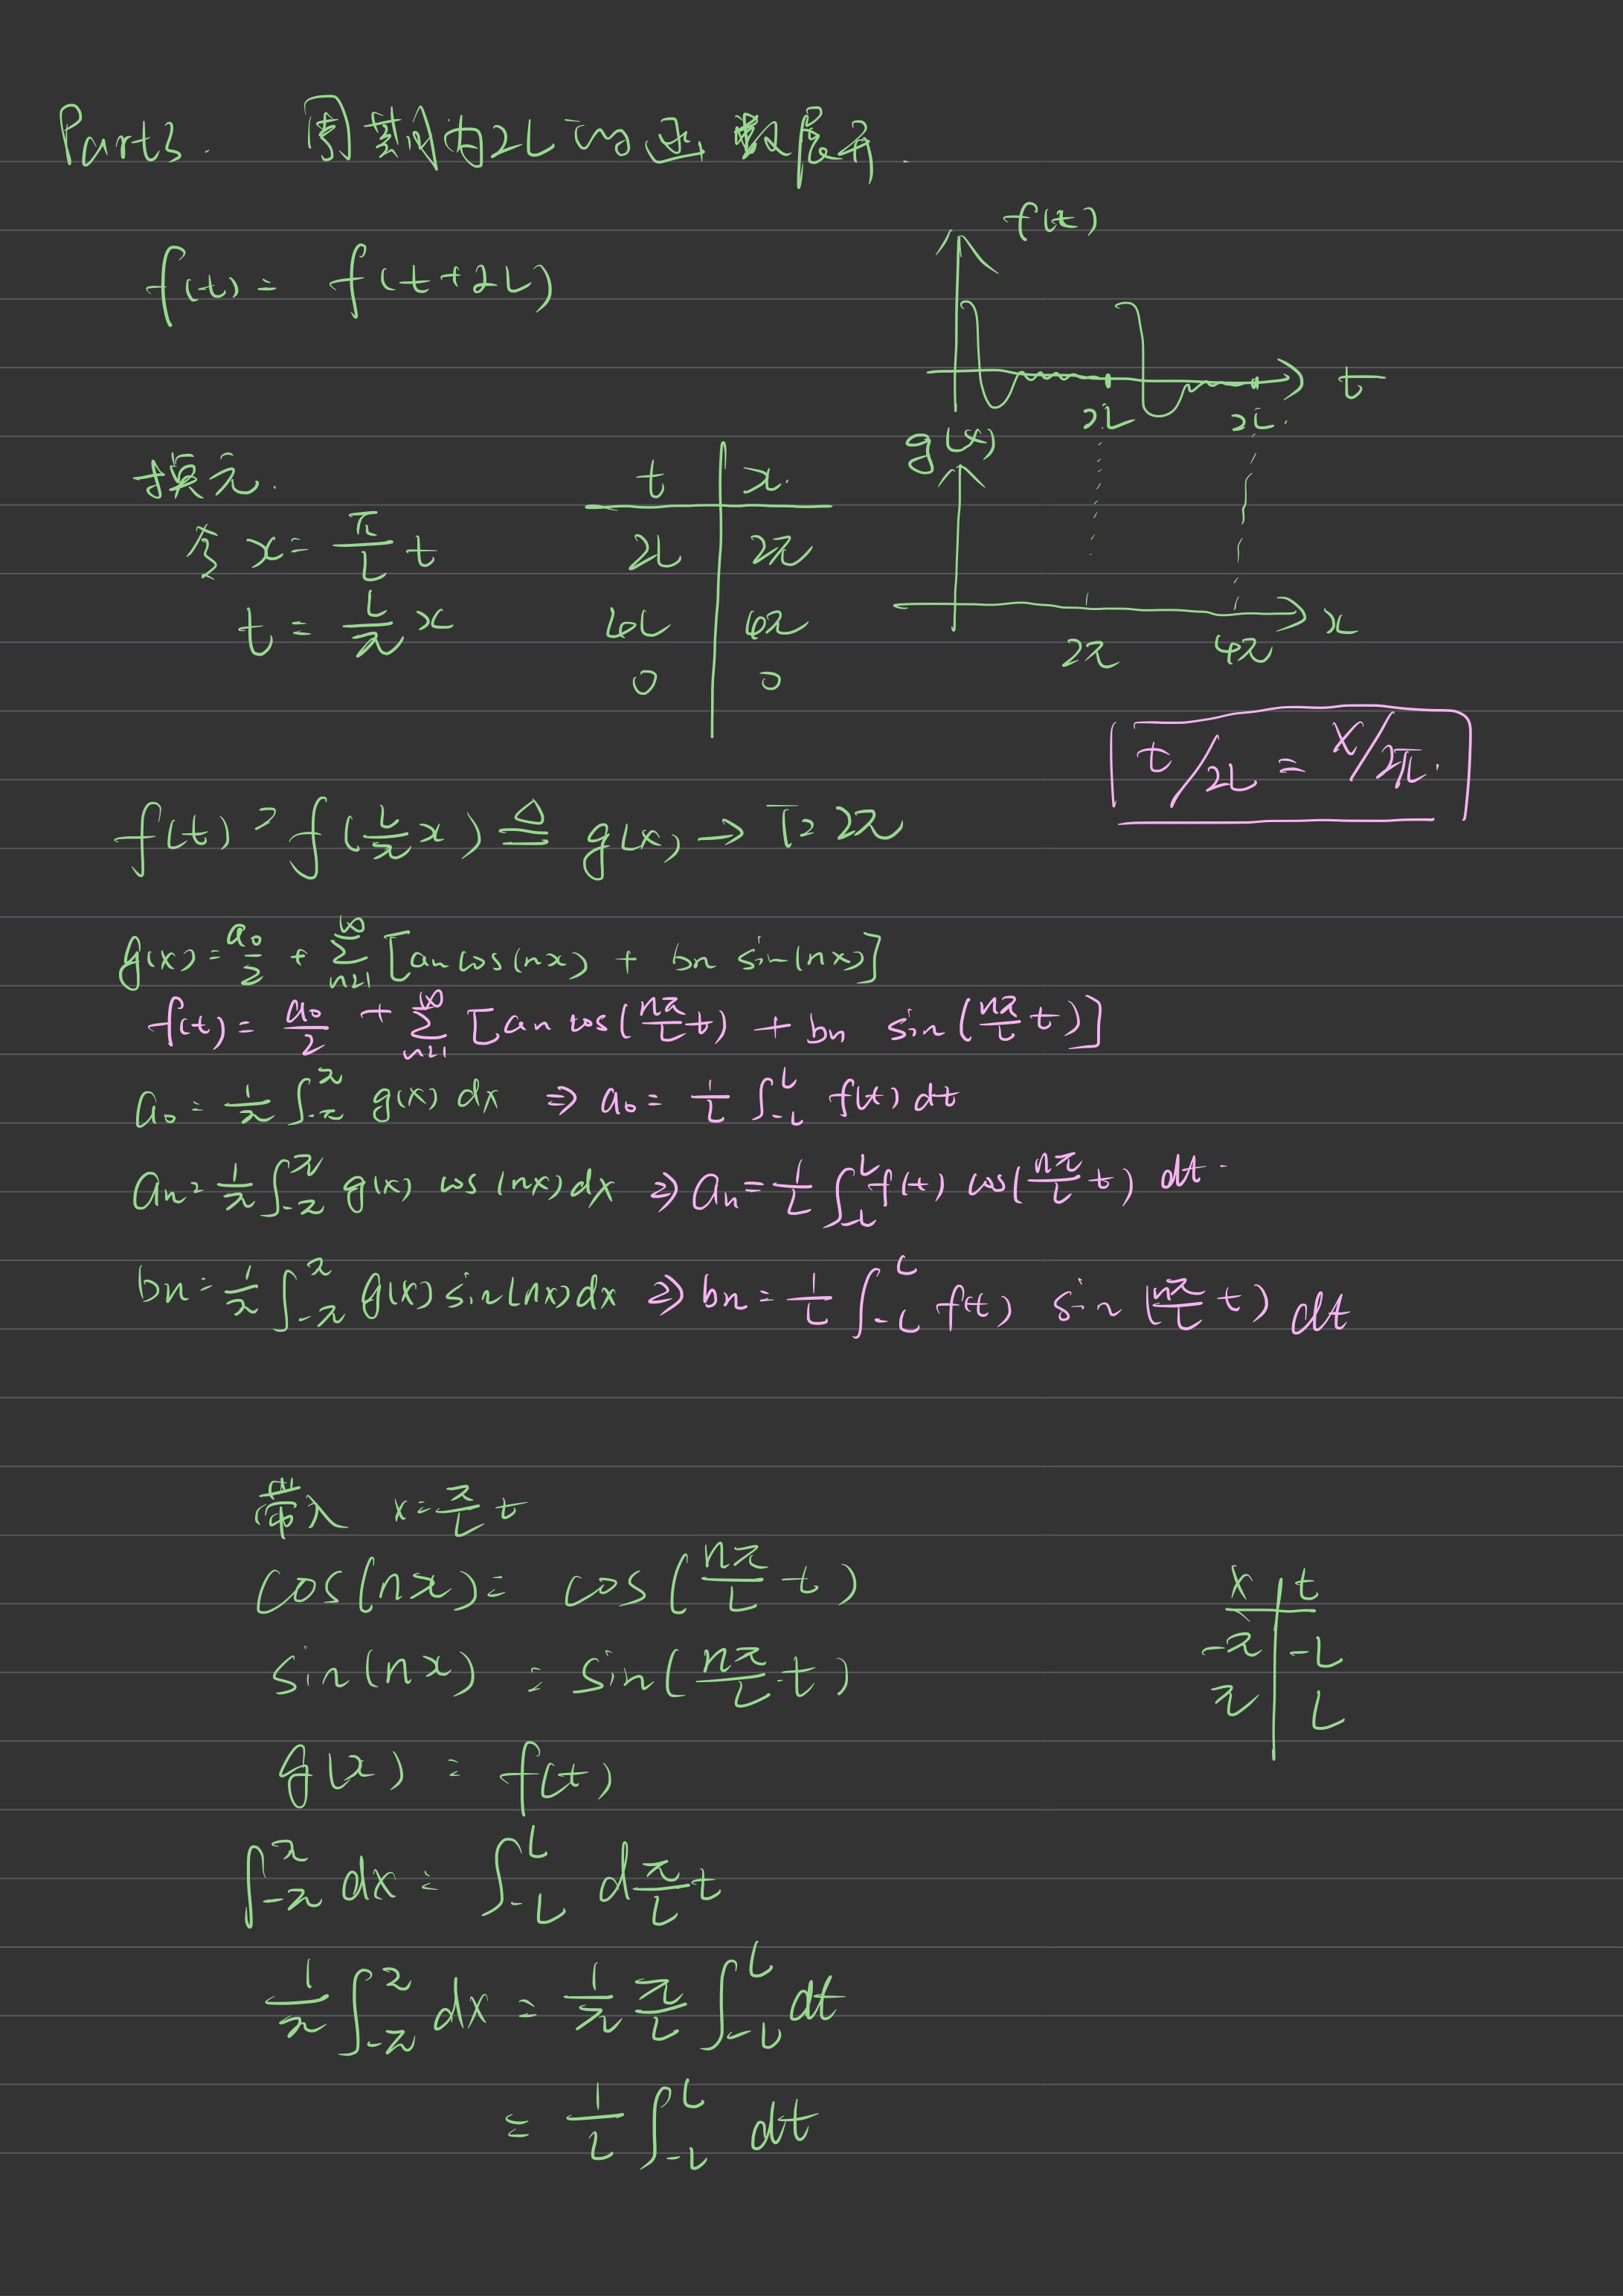 Part3. 周期为2L的函数展开.
f(t) = f(t+2L)
f(t)
t
2L 2L.
换元.
令 x = π/L t
t = L/π x
t x.
2L 2π
4L 4π
0 0
g(x)
x
2π 4π
t/2L = x/2π.
f(t) = f(L/π x) ≜ g(x) → T=2π
g(x) = a0/2 + ∑_{n=1}^{∞} [an cos(nx) + bn sin(nx)]
f(t) = a0/2 + ∑_{n=1}^{∞} [an cos(nπ/L t) + bn sin(nπ/L t)]
a0 = 1/π ∫_{-π}^{π} g(x) dx ⇒ a0 = 1/L ∫_{-L}^{L} f(t) dt
an = 1/π ∫_{-π}^{π} g(x) cos(nx) dx ⇒ an = 1/L ∫_{-L}^{L} f(t) cos(nπ/L t) dt.
bn = 1/π ∫_{-π}^{π} g(x) sin(nx) dx ⇒ bn = 1/L ∫_{-L}^{L} f(t) sin(nπ/L t) dt
带入 x = π/L t
cos(nx) = cos(nπ/L t)
sin(nx) = sin(nπ/L t)
x t
-π -L
π L
g(x) = f(t)
∫_{-π}^{π} dx = ∫_{-L}^{L} d π/L t
1/π ∫_{-π}^{π} dx = 1/π π/L ∫_{-L}^{L} dt
= 1/L ∫_{-L}^{L} dt